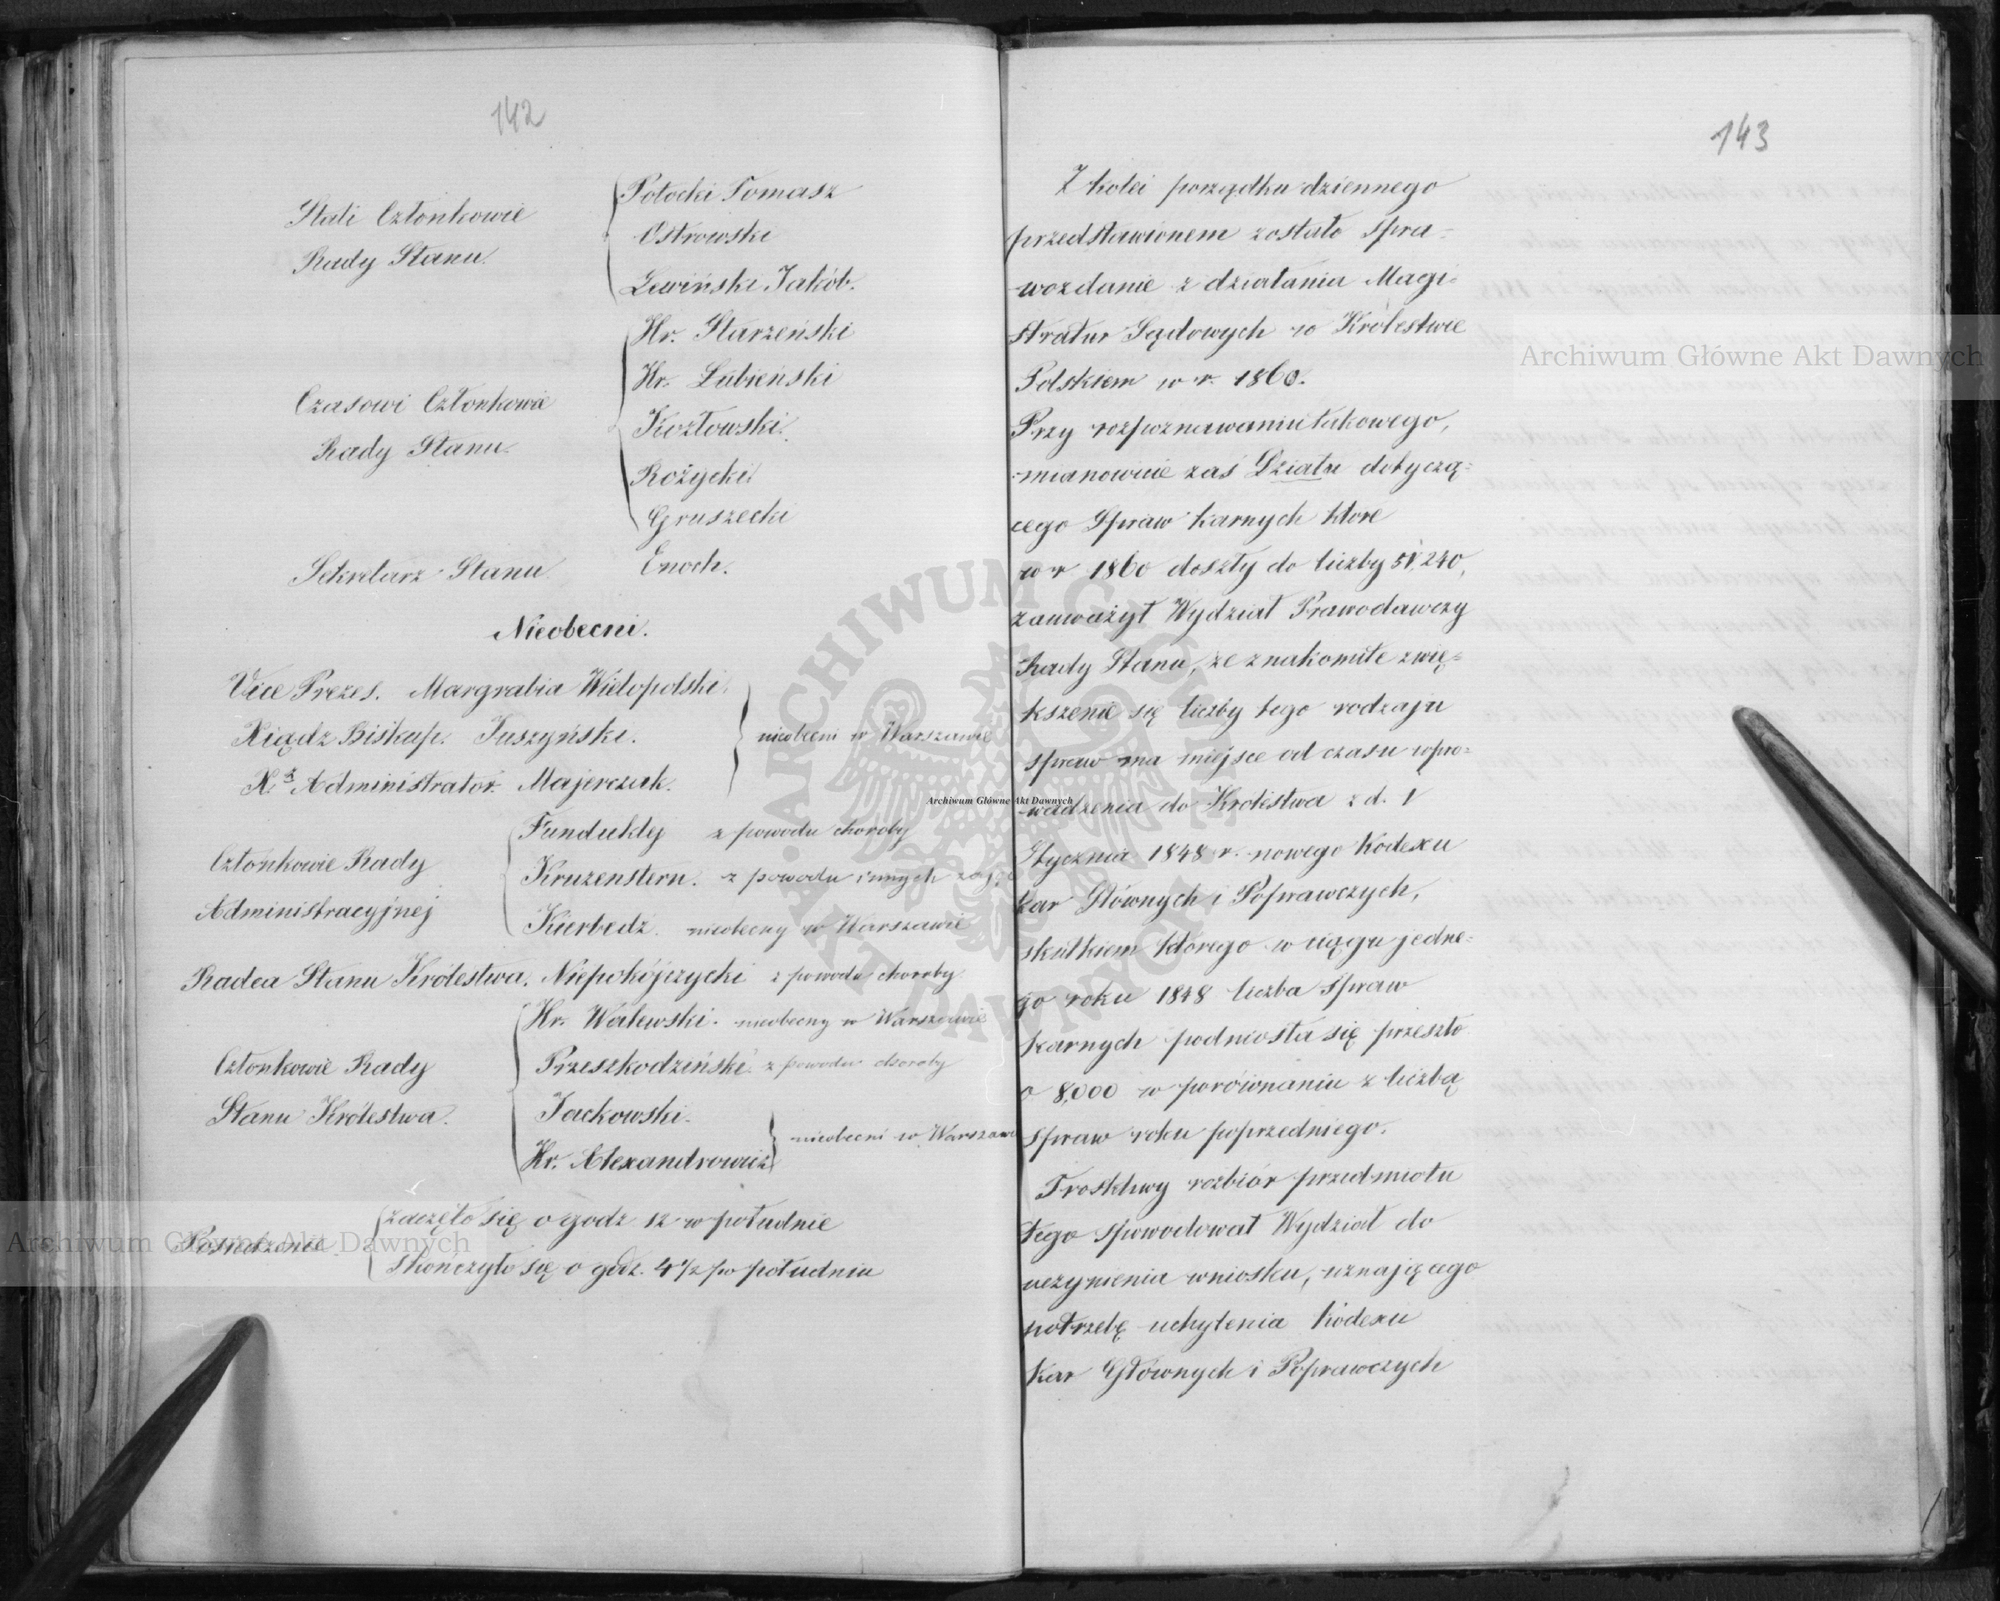 142
Stali Członkowie
Rady Stanu.
Potocki Tomasz
Ostrowski
Lewiński Jakób.
Czasowi Członkowie
Rady Stanu.
Hr. Starzeński
Hr. Łubieński
Kozłowski.
Rożycki
Gruszecki
Sekretarz Stanu
Enoch.
Nieobecni.
Vice Prezes. Margrabia Wielopolski.
Xiądz Biskup. Juszyński.
X.dz Administrator. Majerczak.
nieobecni w Warszawie
Członkowie Rady
Administracyjnej
Fundukley z powodu choroby
Kruzenstern. z powodu innych zaję
Kierbedz. nieobecny w Warszawie
Radca Stanu Królestwa. Niepokójczycki z powodu choroby
Członkowie Rady
Stanu Królestwa.
Hr. Walewski. nieobecny w Warszawie
Przeszkodziński. z powodu choroby
Jackowski.
Hr. Alexandrowicz
nieobecni w Warszawie
Posiedzenie
zaczęło się o godz 12 w południe
skończyło się o godz. 4 1/2 po południu
143
Z kolei porządku dziennego
przedstawionem zostało spra=
wozdanie z działania Magi=
stratur Sądowych w Królestwie
Polskiem w r. 1860.
Przy rozpoznawaniu takowego,
mianowicie zaś Działu dotyczą=
cego Spraw karnych które
w r 1860 doszły do liczby 51,240,
zauważył Wydział Prawodawczy
Rady Stanu, że znakomite zwię=
kszenie się liczby tego rodzaju
spraw ma miejsce od czasu wpro=
wadzenia do Królestwa z d. 1
Stycznia 1848 r. nowego Kodexu
kar Głównych i Poprawczych,
skutkiem którego w ciągu jedne=
go roku 1848 liczba spraw
karnych podniosła się przeszło
o 8,000 w porównaniu z liczbą
spraw roku poprzedniego.
Troskliwy rozbiór przedmiotu
tego spowodował Wydział do
uczynienia wniosku, uznającego
potrzebę uchylenia Kodexu
Kar Głównych i Poprawczych
Archiwum Główne Akt Dawnych
Archiwum Główne Akt Dawnych
Archiwum Główne Akt Dawnych
ARCHIWUM GŁÓWNE AKT DAWNYCH